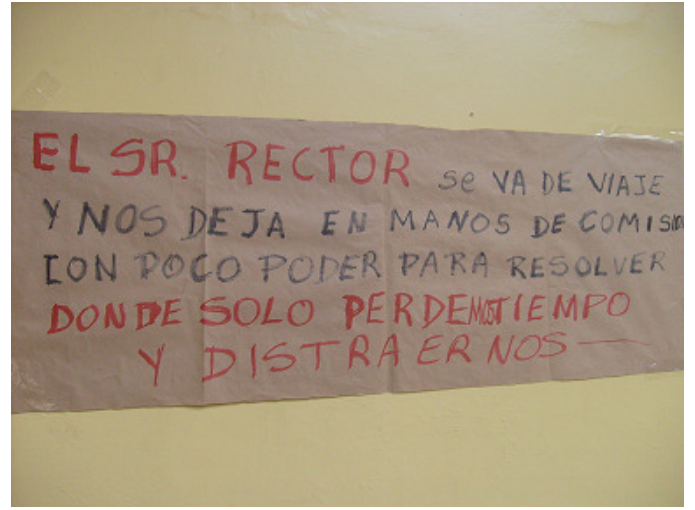 EL SR. RECTOR se VA DE VIAJE
Y NOS DEJA EN MANOS DE COMISIO
CON POCO PODER PARA RESOLVER
DONDE SOLO PERDEMOS TIEMPO
Y DISTRAERNOS —